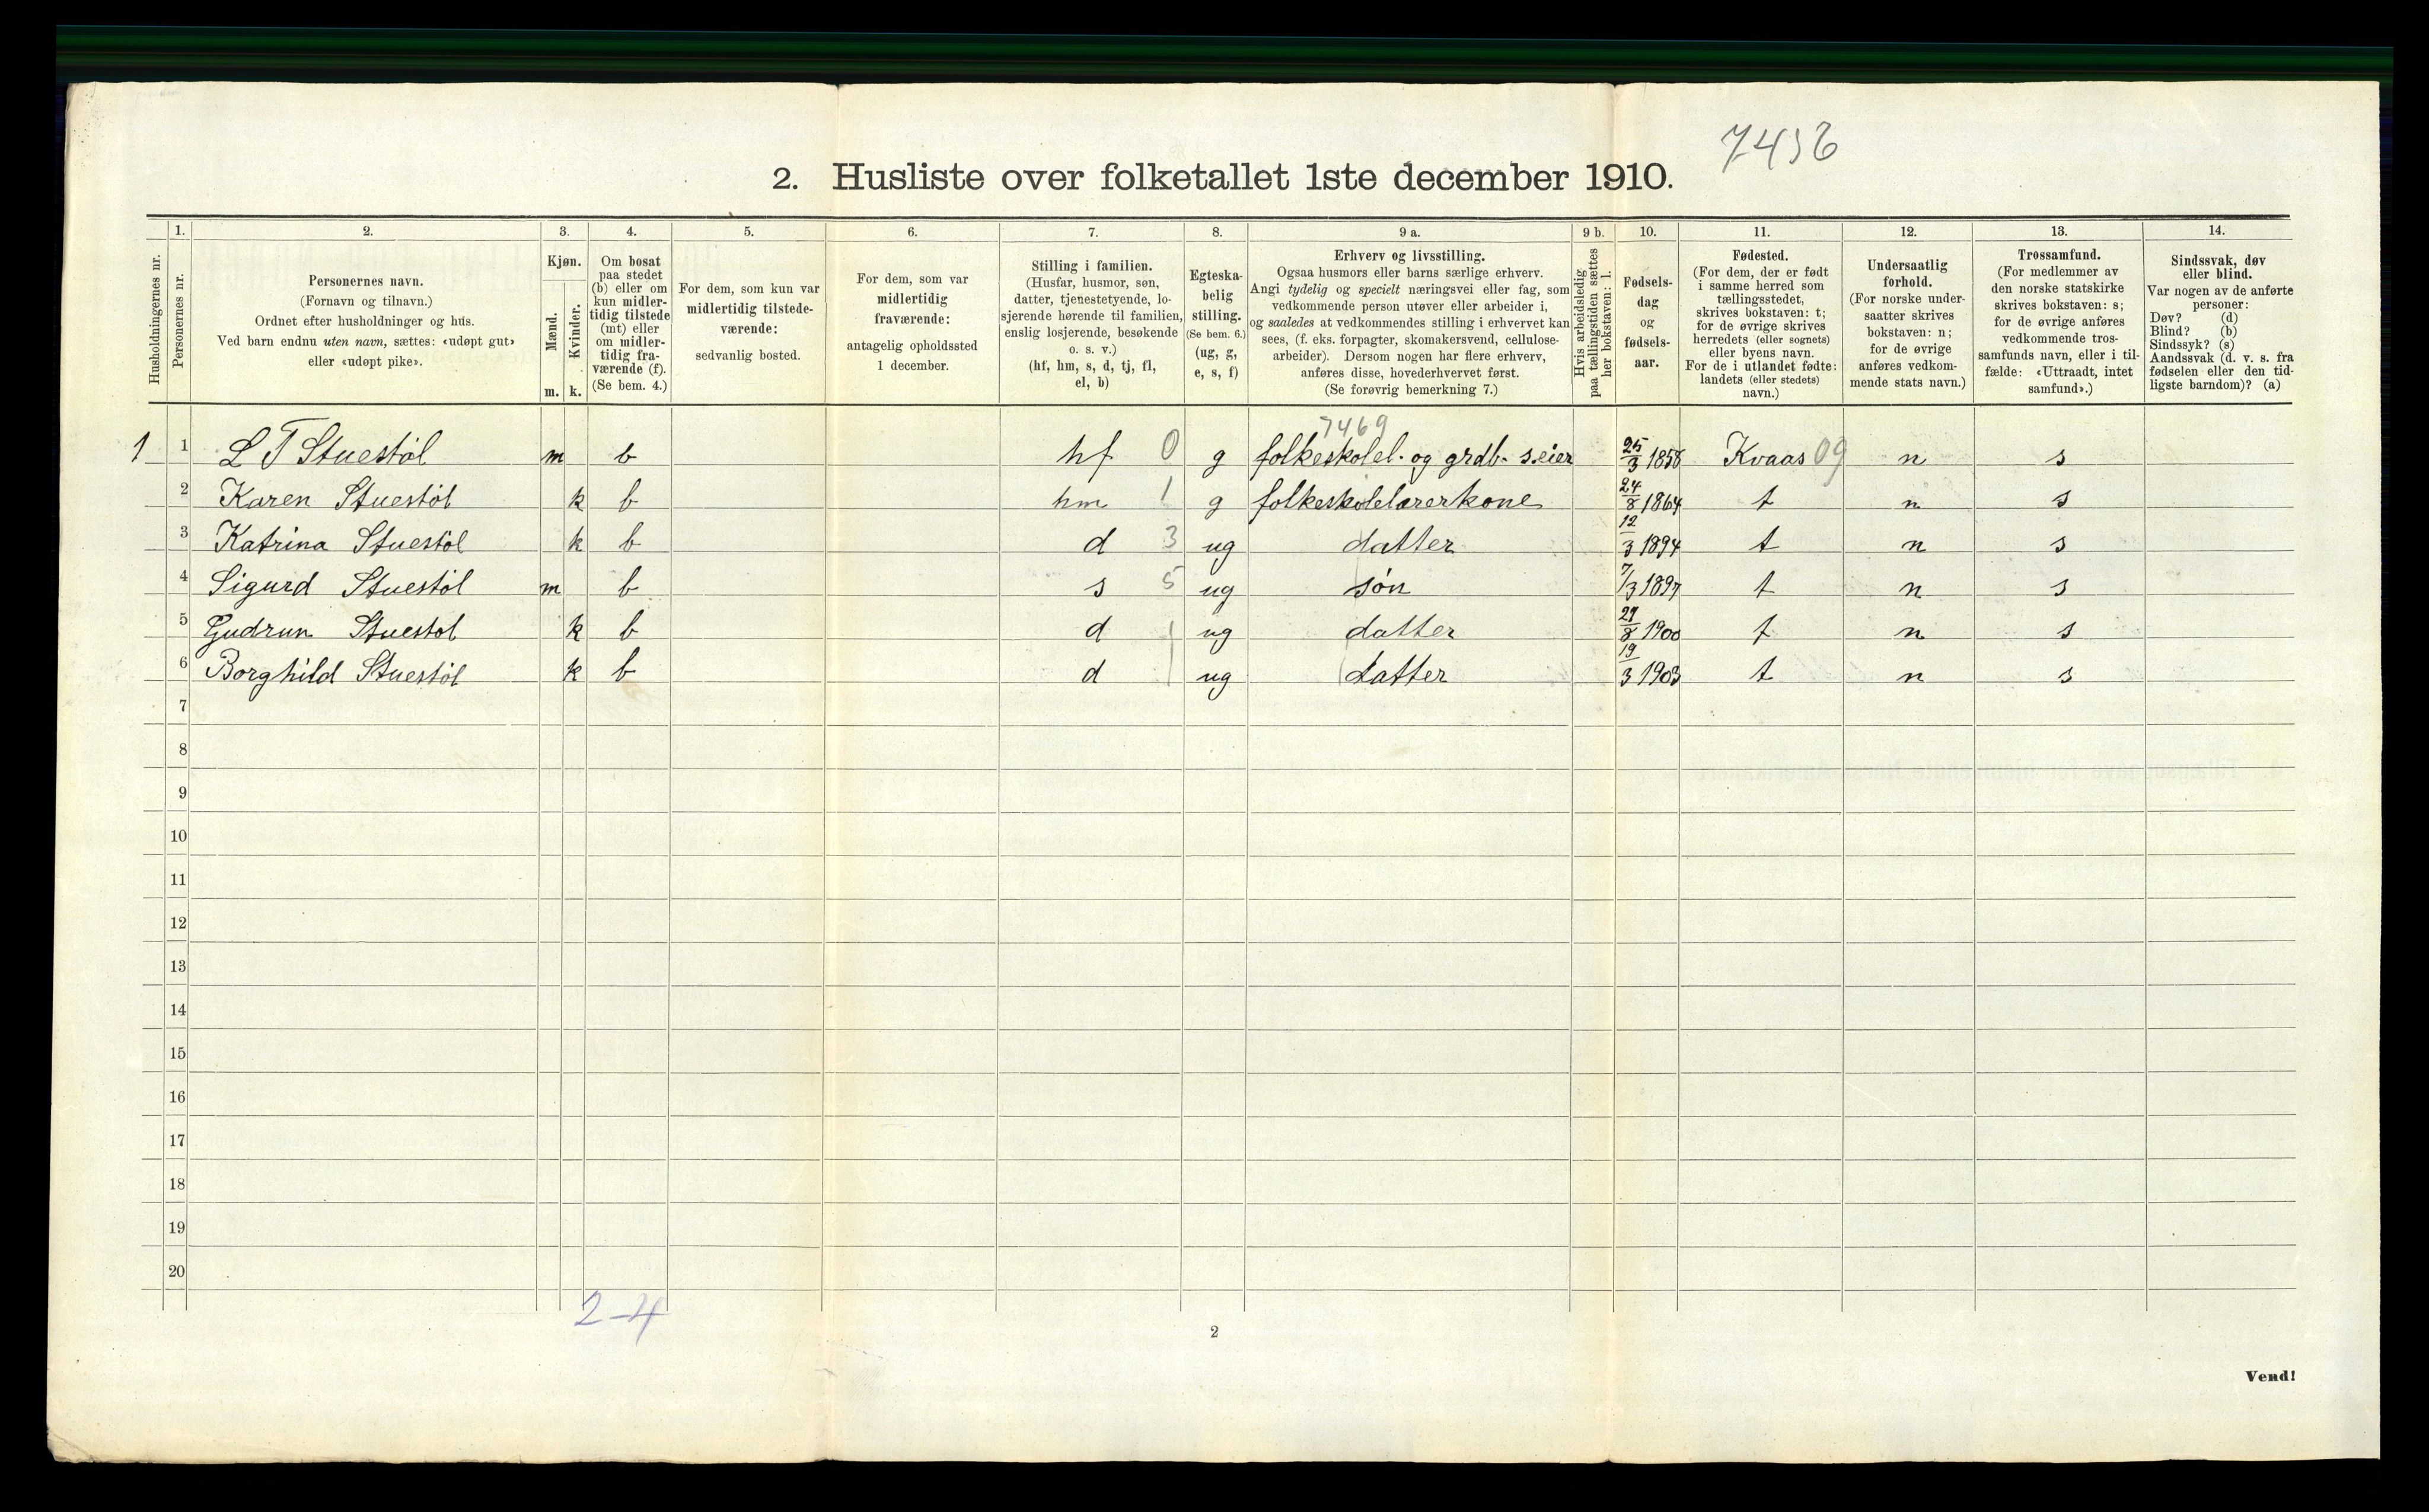 7456
2. Husliste over folketallet 1ste december 1910.
Husholdningernes nr.
1. Personernes nr.
2. Personernes navn.
(Fornavn og tilnavn.)
Ordnet efter husholdninger og hus.
Ved barn endnu uten navn, sættes: «udøpt gut»
eller «udøpt pike».
3. Kjøn.
Mænd. m.
Kvinder. k.
4. Om bosat
paa stedet
(b) eller om
kun midler-
tidig tilstede
(mt) eller
om midler-
tidig fra-
værende (f).
(Se bem. 4.)
5. For dem, som kun var
midlertidig tilstede-
værende:
sedvanlig bosted.
6. For dem, som var
midlertidig
fraværende:
antagelig opholdssted
1 december.
7. Stilling i familien.
(Husfar, husmor, søn,
datter, tjenestetyende, lo-
sjerende hørende til familien,
enslig losjerende, besøkende
o. s. v.)
(hf, hm, s, d, tj, fl,
el, b)
8. Egteska-
belig
stilling.
(Se bem. 6.)
(ug, g,
e, s, f)
9 a. Erhverv og livsstilling.
Ogsaa husmors eller barns særlige erhverv.
Angi tydelig og specielt næringsvei eller fag, som
vedkommende person utøver eller arbeider i,
og saaledes at vedkommendes stilling i erhvervet kan
sees, (f. eks. forpagter, skomakersvend, cellulose-
arbeider). Dersom nogen har flere erhverv,
anføres disse, hovederhvervet først.
(Se forøvrig bemerkning 7.)
9 b. Hvis arbeidsledig
paa tællingstiden sættes
her bokstaven: l.
10. Fødsels-
dag
og
fødsels-
aar.
11. Fødested.
(For dem, der er født
i samme herred som
tællingsstedet,
skrives bokstaven: t;
for de øvrige skrives
herredets (eller sognets)
eller byens navn.
For de i utlandet fødte:
landets (eller stedets)
navn.)
12. Undersaatlig
forhold.
(For norske under-
saatter skrives
bokstaven: n;
for de øvrige
anføres vedkom-
mende stats navn.)
13. Trossamfund.
(For medlemmer av
den norske statskirke
skrives bokstaven: s;
for de øvrige anføres
vedkommende tros-
samfunds navn, eller i til-
fælde: «Uttraadt, intet
samfund».)
14. Sindssvak, døv
eller blind.
Var nogen av de anførte
personer:
Døv? (d)
Blind? (b)
Sindssyk? (s)
Aandssvak (d. v. s. fra
fødselen eller den tid-
ligste barndom)? (a)
7469
1 1 L T Stuestöl m b hf 0 g folkeskolel. og grdb. s.eier 25/3 1858 Kvaas 09 n s
2 Karen Stuestöl k b hm 1 g folkeskolelærerkone 24/8 1864 t n s
3 Katrina Stuestöl k b d 3 ug datter 12/3 1894 t n s
4 Sigurd Stuestöl m b s 5 ug sön 7/3 1897 t n s
5 Gudrun Stuestol k b d ug datter 27/8 1900 t n s
6 Borghild Stuestöl k b d ug datter 19/3 1903 t n s
7
8
9
10
11
12
13
14
15
16
17
18
19
20
2-4
2
Vend!